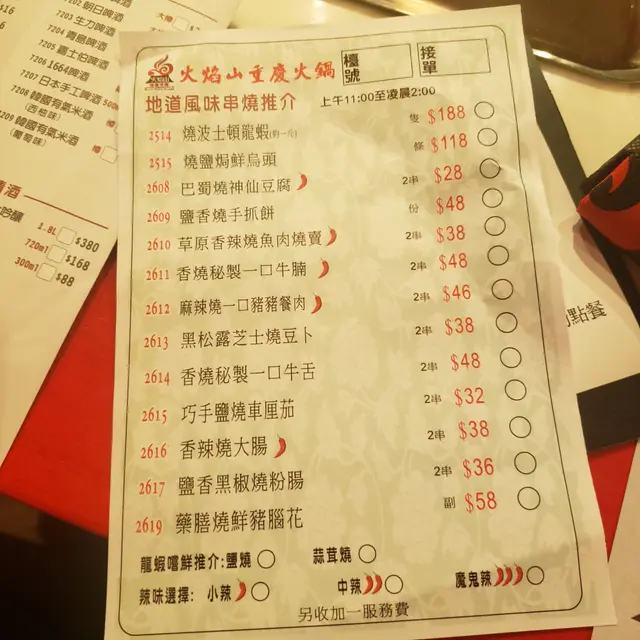 7202 朝日啤酒
7203 生力啤酒
7204 青島啤酒
7205 嘉士伯啤酒
7206 1664啤酒
7207 日本手工啤酒
7208 韓國有氣米酒
(西柚味)
7209 韓國有氣米酒
(葡萄味)
1.8L $380
720ml $168
300ml $88
火焰山重慶火鍋
檯號
接單
地道風味串燒推介 上午11:00至凌晨2:00
2514 燒波士頓龍蝦 隻 $188
2515 燒鹽焗鮮烏頭 條 $118
2608 巴蜀燒神仙豆腐 2串 $28
2609 鹽香燒手抓餅 份 $48
2610 草原香辣燒魚肉燒賣 2串 $38
2611 香燒秘製一口牛腩 2串 $48
2612 麻辣燒一口豬豬餐肉 2串 $46
2613 黑松露芝士燒豆卜 2串 $38
2614 香燒秘製一口牛舌 2串 $48
2615 巧手鹽燒車厘茄 2串 $32
2616 香辣燒大腸 2串 $38
2617 鹽香黑椒燒粉腸 2串 $36
2619 藥膳燒鮮豬腦花 副 $58
龍蝦嚐鮮推介:鹽燒 蒜茸燒
辣味選擇: 小辣 中辣 魔鬼辣
另收加一服務費
點餐